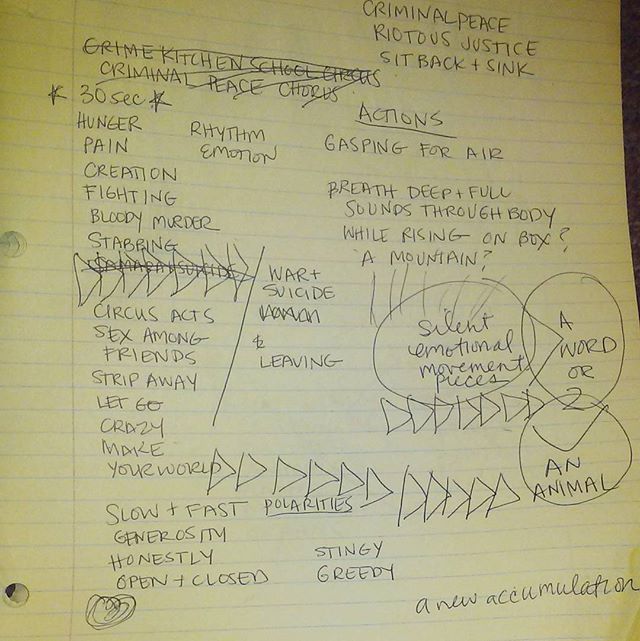 CRIMINAL PEACE
RIOTOUS JUSTICE
SIT BACK + SINK
CRIME KITCHEN SCHOOL CIRCUS
CRIMINAL PEACE CHORUS
* 30 sec *
HUNGER
PAIN
CREATION
FIGHTING
BLOODY MURDER
STABBING
CIRCUS ACTS
SEX AMONG
FRIENDS
STRIP AWAY
LET GO
CRAZY
MAKE
YOUR WORLD
RHYTHM
EMOTION
WAR +
SUICIDE
&
LEAVING
ACTIONS
GASPING FOR AIR
BREATH DEEP + FULL
SOUNDS THROUGH BODY
WHILE RISING ON BOX?
A MOUNTAIN?
Silent
emotional
movement
pieces
A
WORD
OR
2
AN
ANIMAL
SLOW + FAST POLARITIES
GENEROSITY
HONESTLY STINGY
OPEN + CLOSED GREEDY
a new accumulation